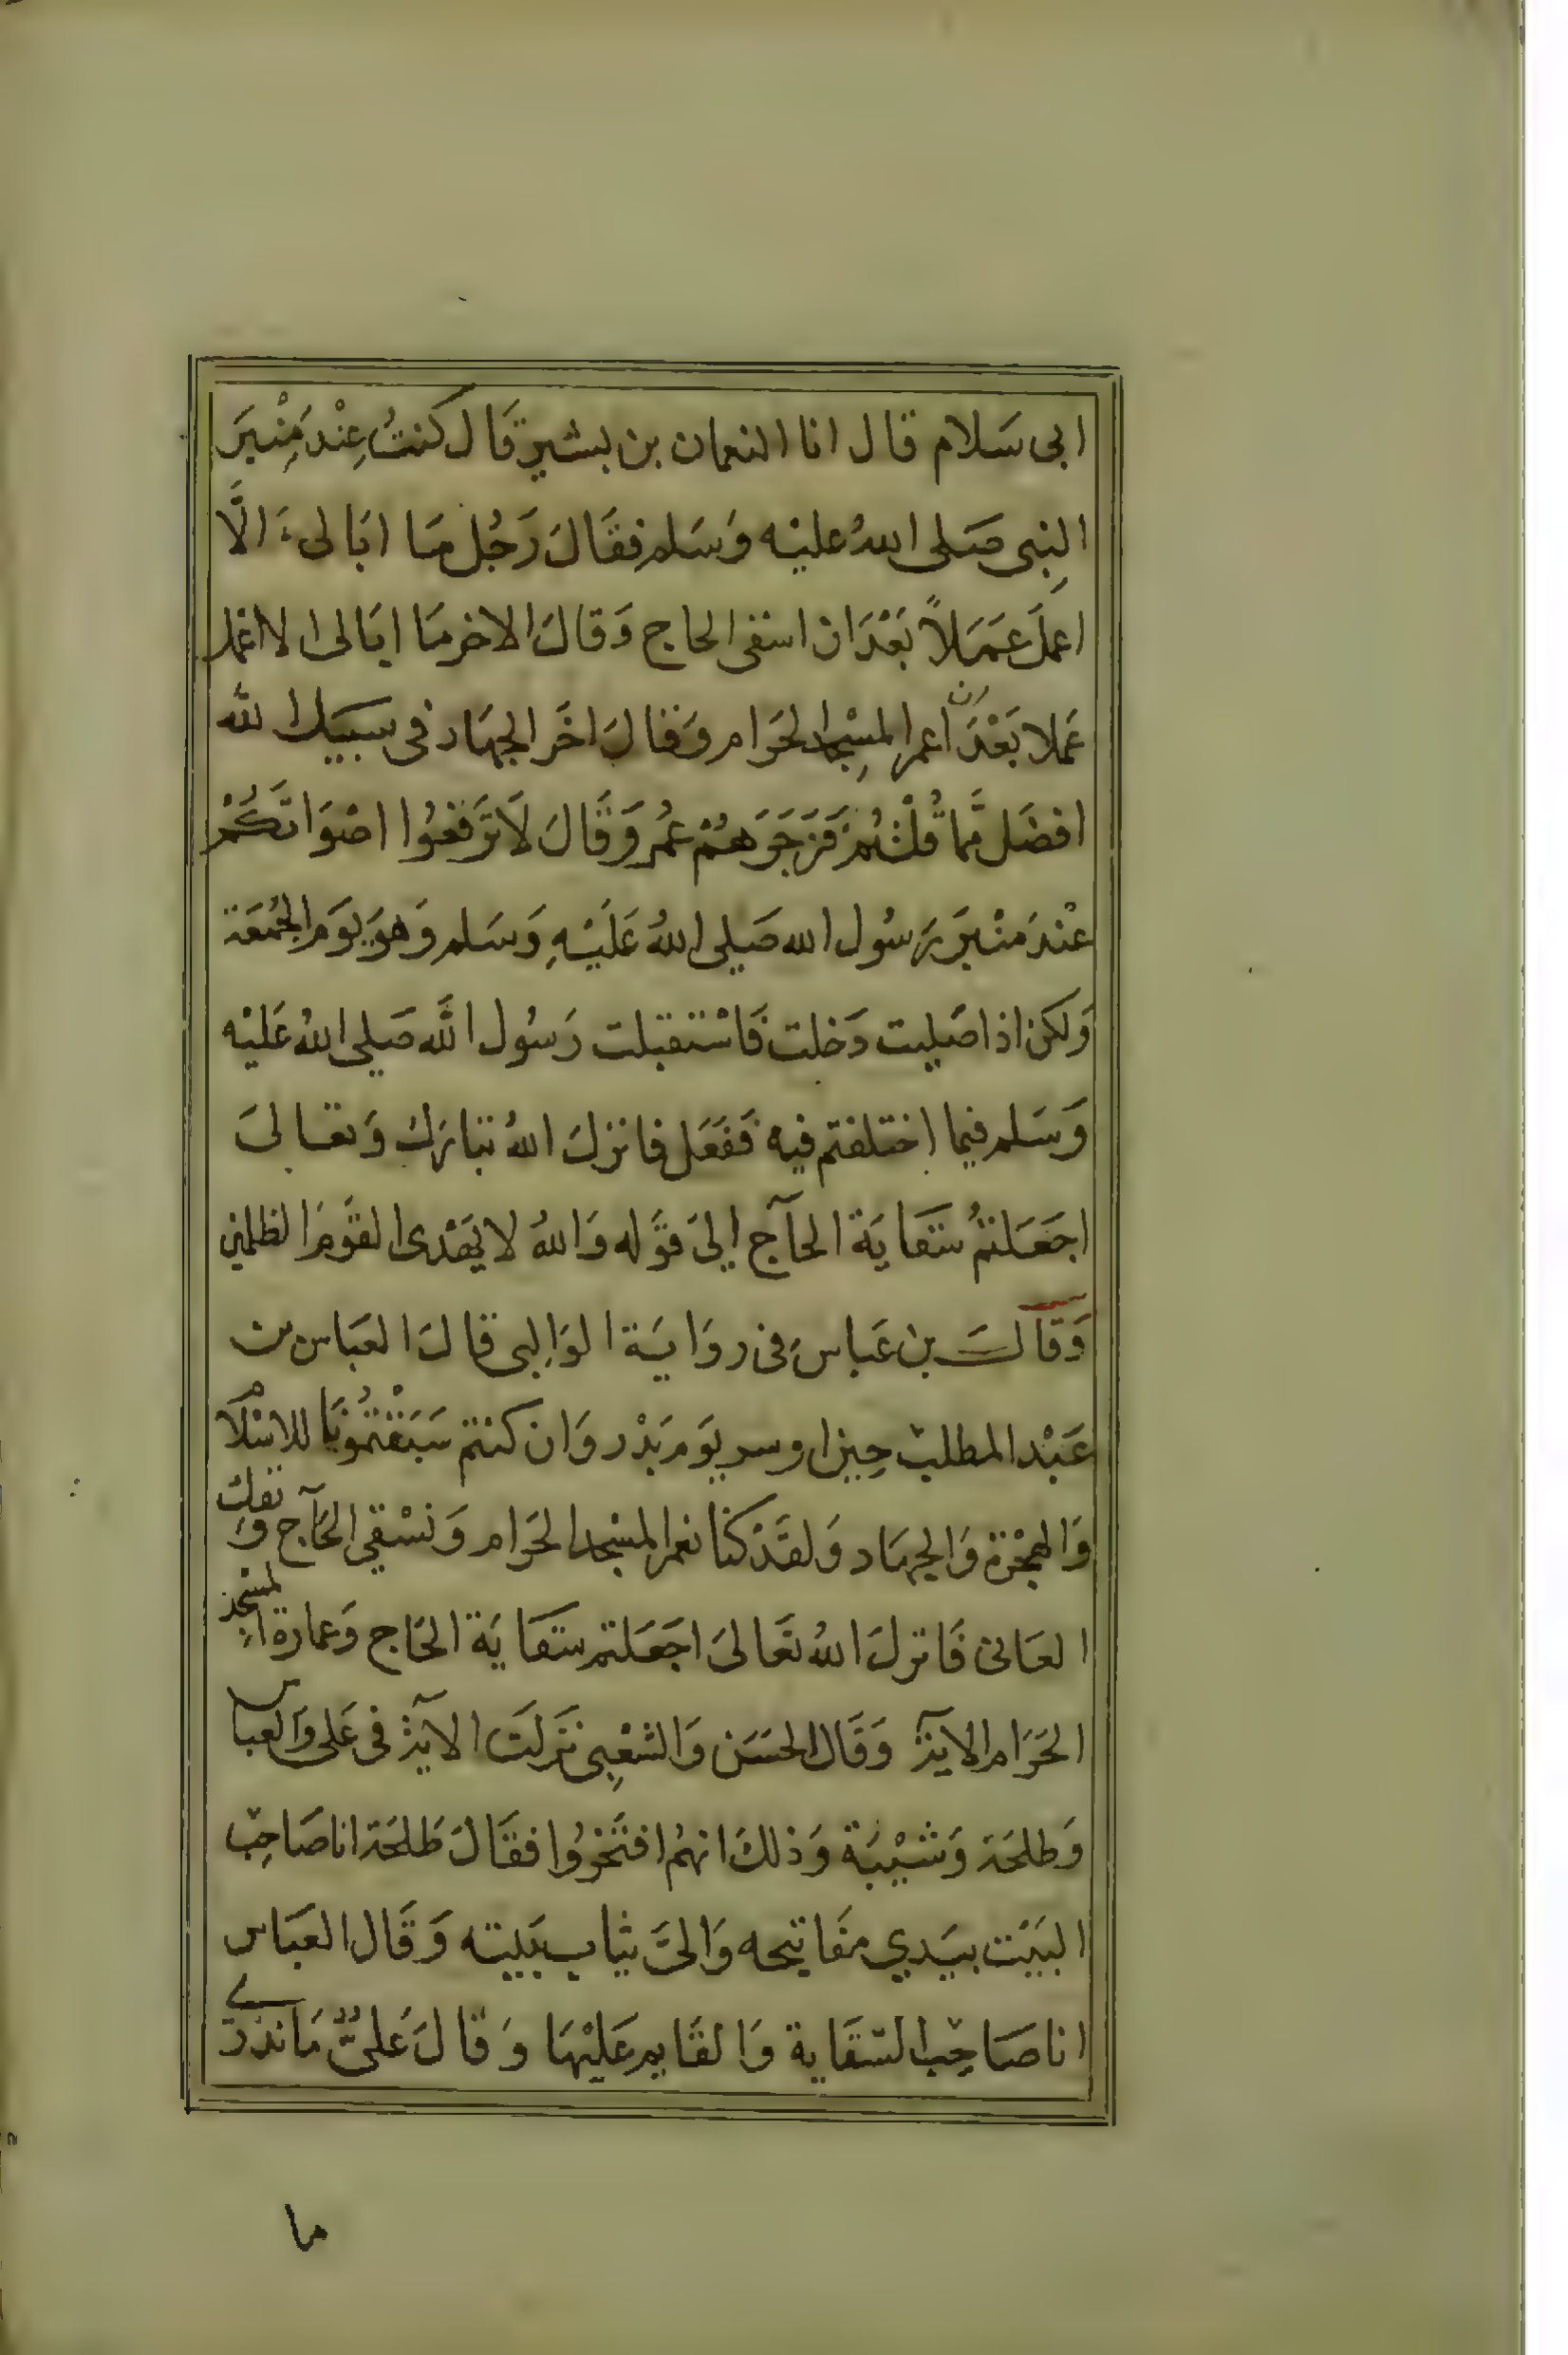 ابى سَلام قال انا النعمان بن بشير قَال كنتُ عِنْدَ مِنْبَرَ
النِبى صَلى اللهُ عليْه وَسَلم فقَالَ رَجُل مَا ابَالى ءَ الَّا
اعملَ عَمَلاً بَعْدَ ان اسْقى الحاج وَقالَ الاخر مَا ابَالى ان لا اعْمل
عَملا بَعْدَ ان اعمر المسْجِد الحَرَام وَقالَ اخَر الجهَاد فى سبيَل الله
افضَل مَّما قُلْتُمْ فَزَجَرَهُمْ عُمر وَقَّالَ لَا تَرَفعُوا اصْوَاتَكُمْ
عْندَ منْبَر رَسُول الله صَلى اللهُ عَلَيْهِ وَسَلم وَهوَ يَوَم الجُمعَة
وَلكن اذا صَليت دَخلت فَاسْتفتيت رَسُول اللَّه صَلى اللهُ عَليْه
وَسَلم فيما اختلفتم فيه فَفعَل فانزلَ اللهُ تبَارَك وَتعَالىَ
اجَعَلتمُ سَقايَة الحآج اِلىَ قوَله وَاللهُ لا يَهْدى القوَمَ الظلمين
وَقَالَ بن عَباسَ فى روَايَة الوَالِبى قالَ العبَاس بن
عَبْد المطلبْ حِين اوسر يوَم بَدْر وَان كنتم سَبَقْتمُونَا للاسْلاَم
وَالهجْرَة وَالجهَاد وَلقَدْ كنا نعمر المسْجد الحَرَام وَنسْقي الحَآج وَنفك
العَانى فَانزلَ اللهُ تعَالىَ اجَعَلتم سَقايَة الحَاج وَعمارة المسْجد
الحَرَام الآيَة وَقَال الحسَن وَالشعْبِى نزَلتَ الآيَة فى عَلى وَالعباس
وَطلحَة وَشيْبَة وَذلكَ انهمُ افتَخرُوا فقَالَ طَلحَة انا صَاحِبْ
البَيْت بيَدي مفَاتيحه وَالىَّ ثيَاب بيَته وَقَال العبَاس
انا صَاحِب السّقَاية وَالقَايم عَليْهَا وَقالَ عَلىُّ مَا نَدْرى
ما